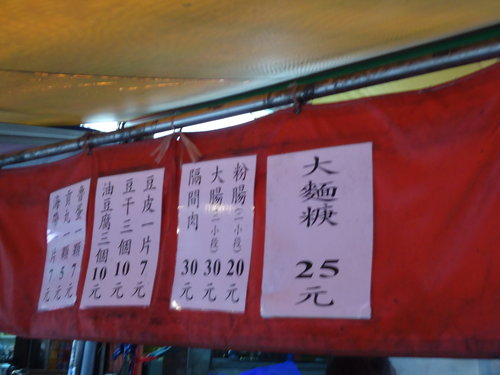 大麵羹 25元
粉腸(一小段) 20元
大腸(一小段) 30元
隔間肉 30元
豆皮一片7元
豆干三個10元
油豆腐三個10元
魯蛋一顆7元
貢丸一顆5元
海帶一片7元